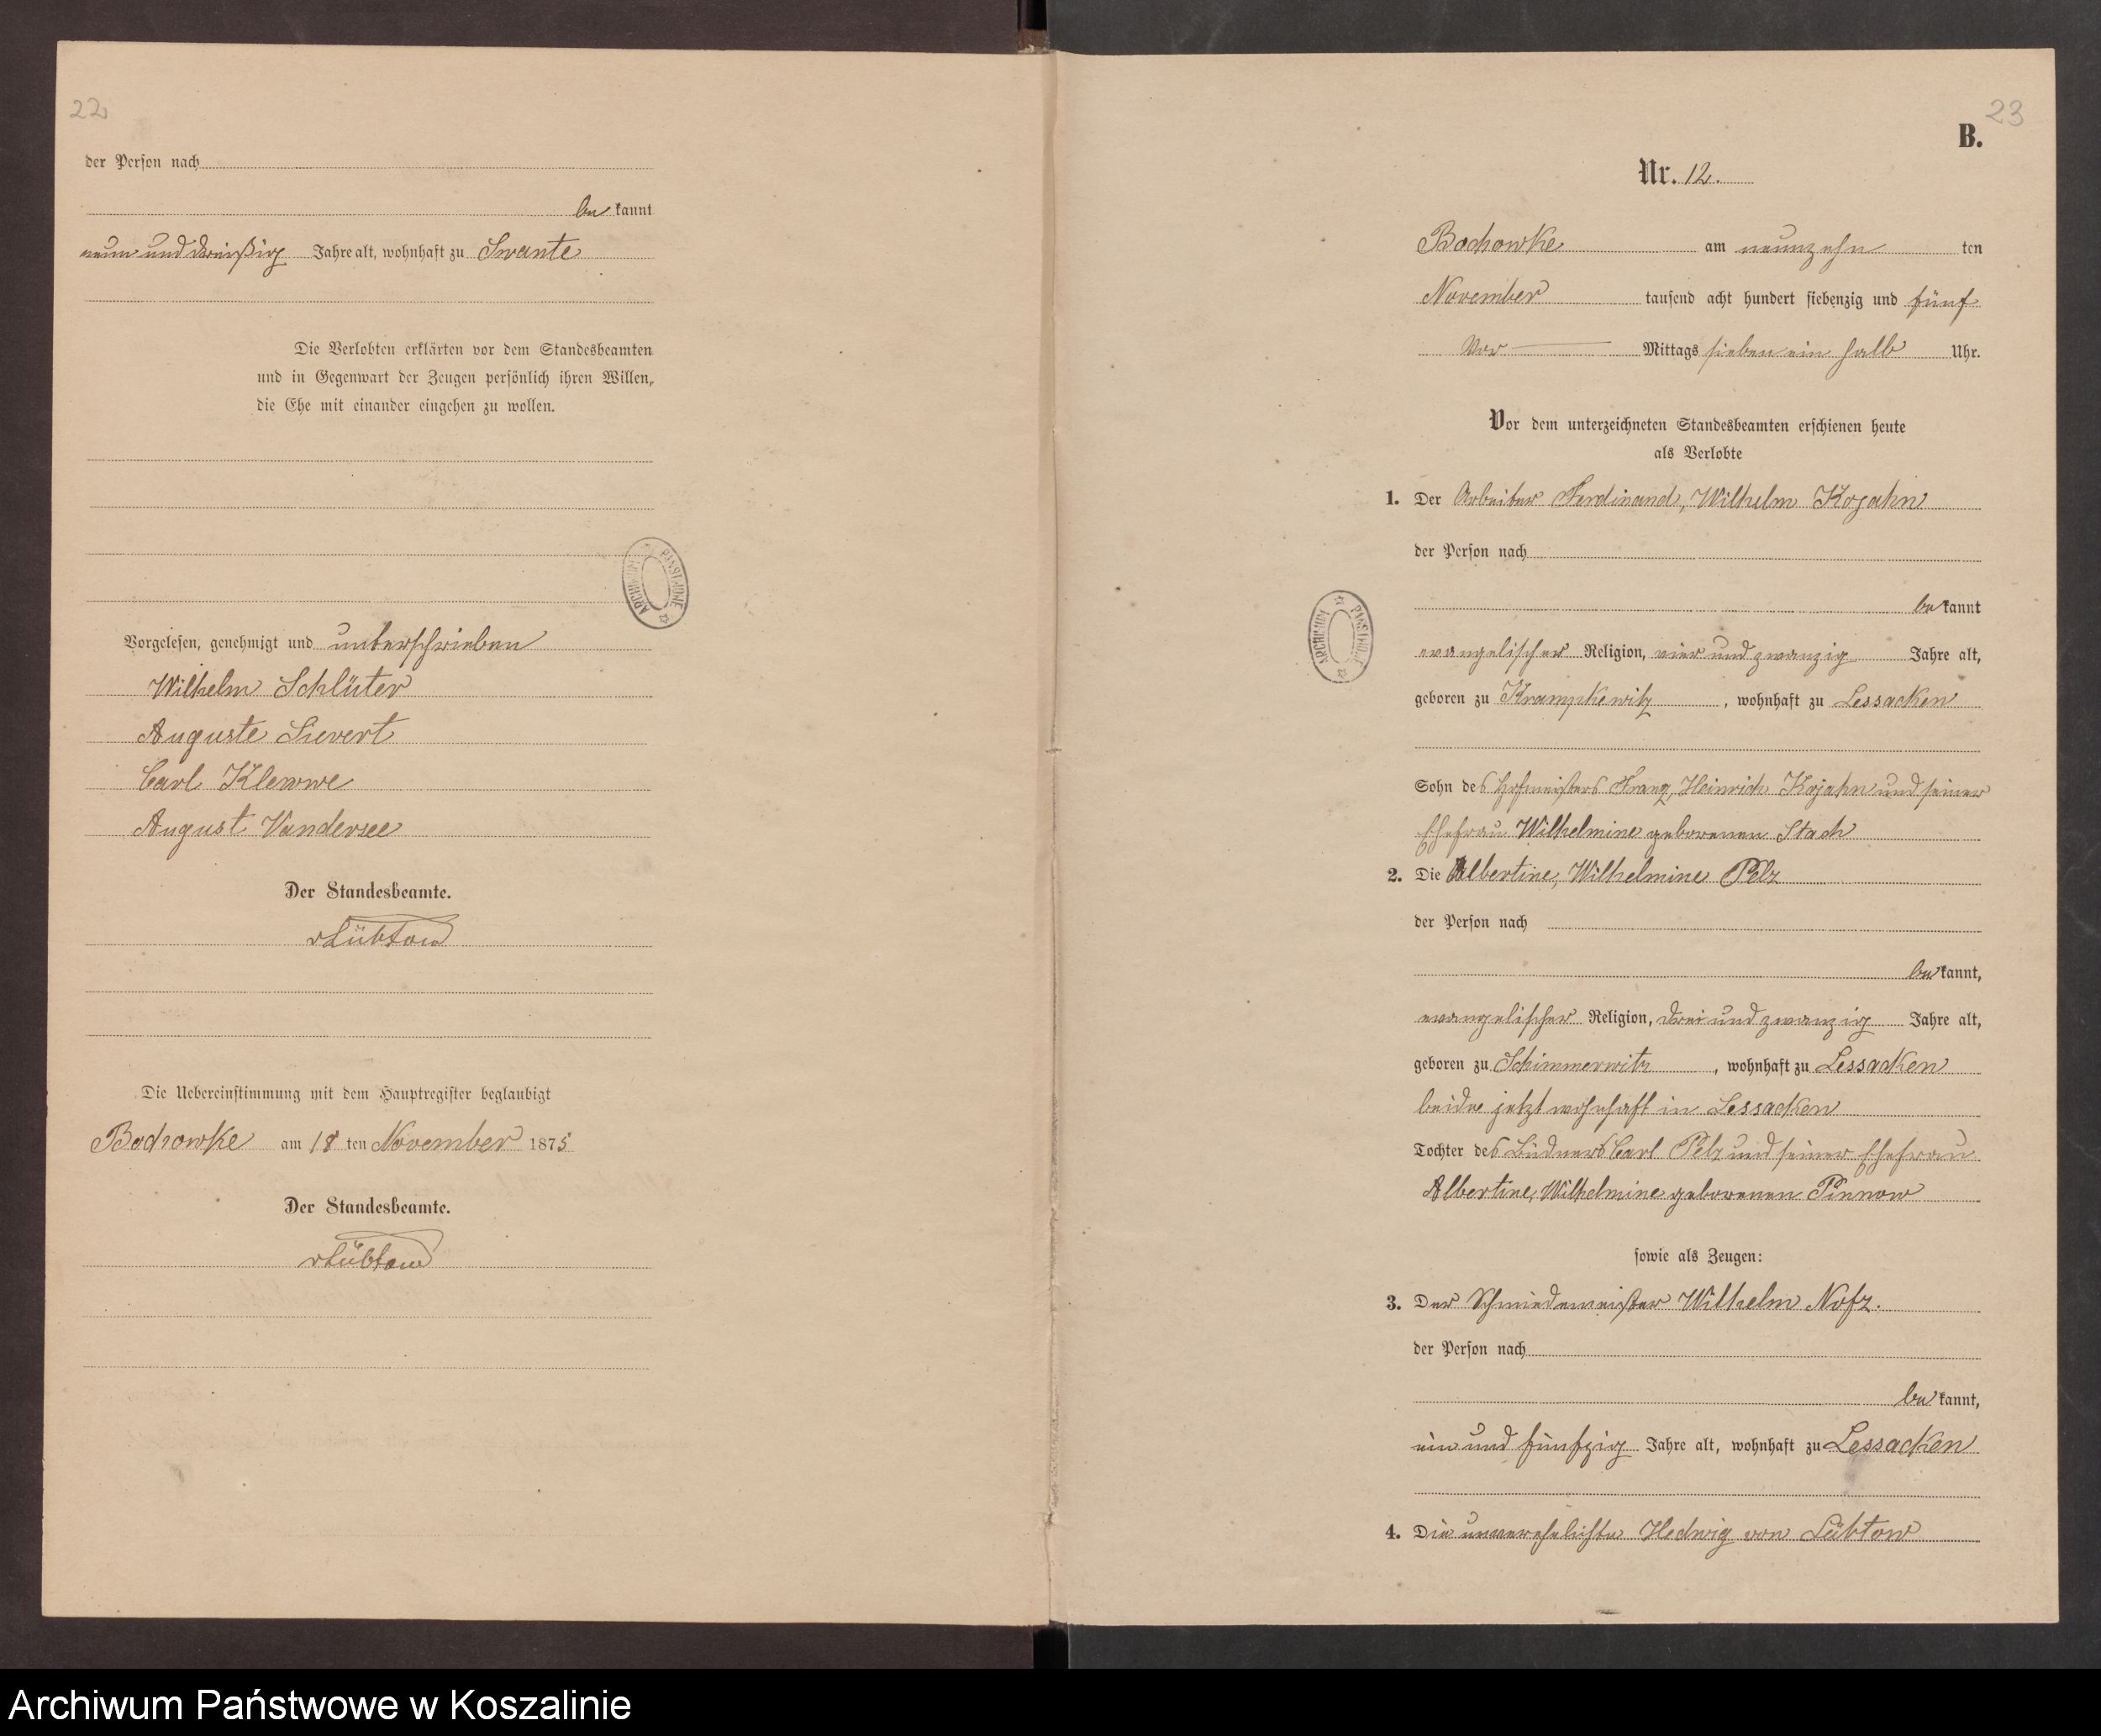 22
der Person nach
be kannt
neun und dreißig Jahre alt, wohnhaft zu Swante
Die Verlobten erklärten vor dem Standesbeamten
und in Gegenwart der Zeugen persönlich ihren Willen,
die Ehe mit einander eingehen zu wollen.
ARCHIWUM PAŃSTWOWE
Vorgelesen, genehmigt und unterschrieben
Wilhelm Schlüter
Auguste Sievert
Carl Klewwe
August Vandersee
Der Standesbeamte.
vLübtow
Die Uebereinstimmung mit dem Hauptregister beglaubigt
Bochowke am 18 ten November 1875
Der Standesbeamte.
vLübtow
23
B.
Nr. 12.
Bochowke am neunzehn ten
November tausend acht hundert siebenzig und fünf
Vor Mittags sieben ein halb Uhr.
Vor dem unterzeichneten Standesbeamten erschienen heute
als Verlobte
1. Der Arbeiter Ferdinand, Wilhelm Kojahn
der Person nach
be kannt
ARCHIWUM PAŃSTWOWE
evangelischer Religion, vier und zwanzig Jahre alt,
geboren zu Krampkewitz, wohnhaft zu Lessacken
Sohn des Hofmeisters Franz, Heinrich Kojahn und seiner
Ehefrau Wilhelmine geborenen Stach
2. Die Albertine, Wilhelmine Pelz
der Person nach
be kannt,
evangelischer Religion, drei und zwanzig Jahre alt,
geboren zu Schimmerwitz, wohnhaft zu Lessacken
beide jetzt wohnhaft in Lessacken
Tochter des Büdners Carl Pelz und seiner Ehefrau
Albertine, Wilhelmine geborenen Pinnow
sowie als Zeugen:
3. Der Schmiedemeister Wilhelm Nofz.
der Person nach
be kannt,
ein und fünfzig Jahre alt, wohnhaft zu Lessacken
4. Die unverehelichte Hedwig von Lübtow
Archiwum Państwowe w Koszalinie